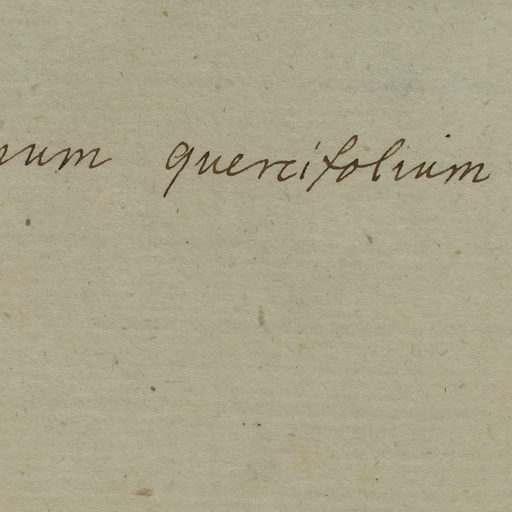 num quercifolium